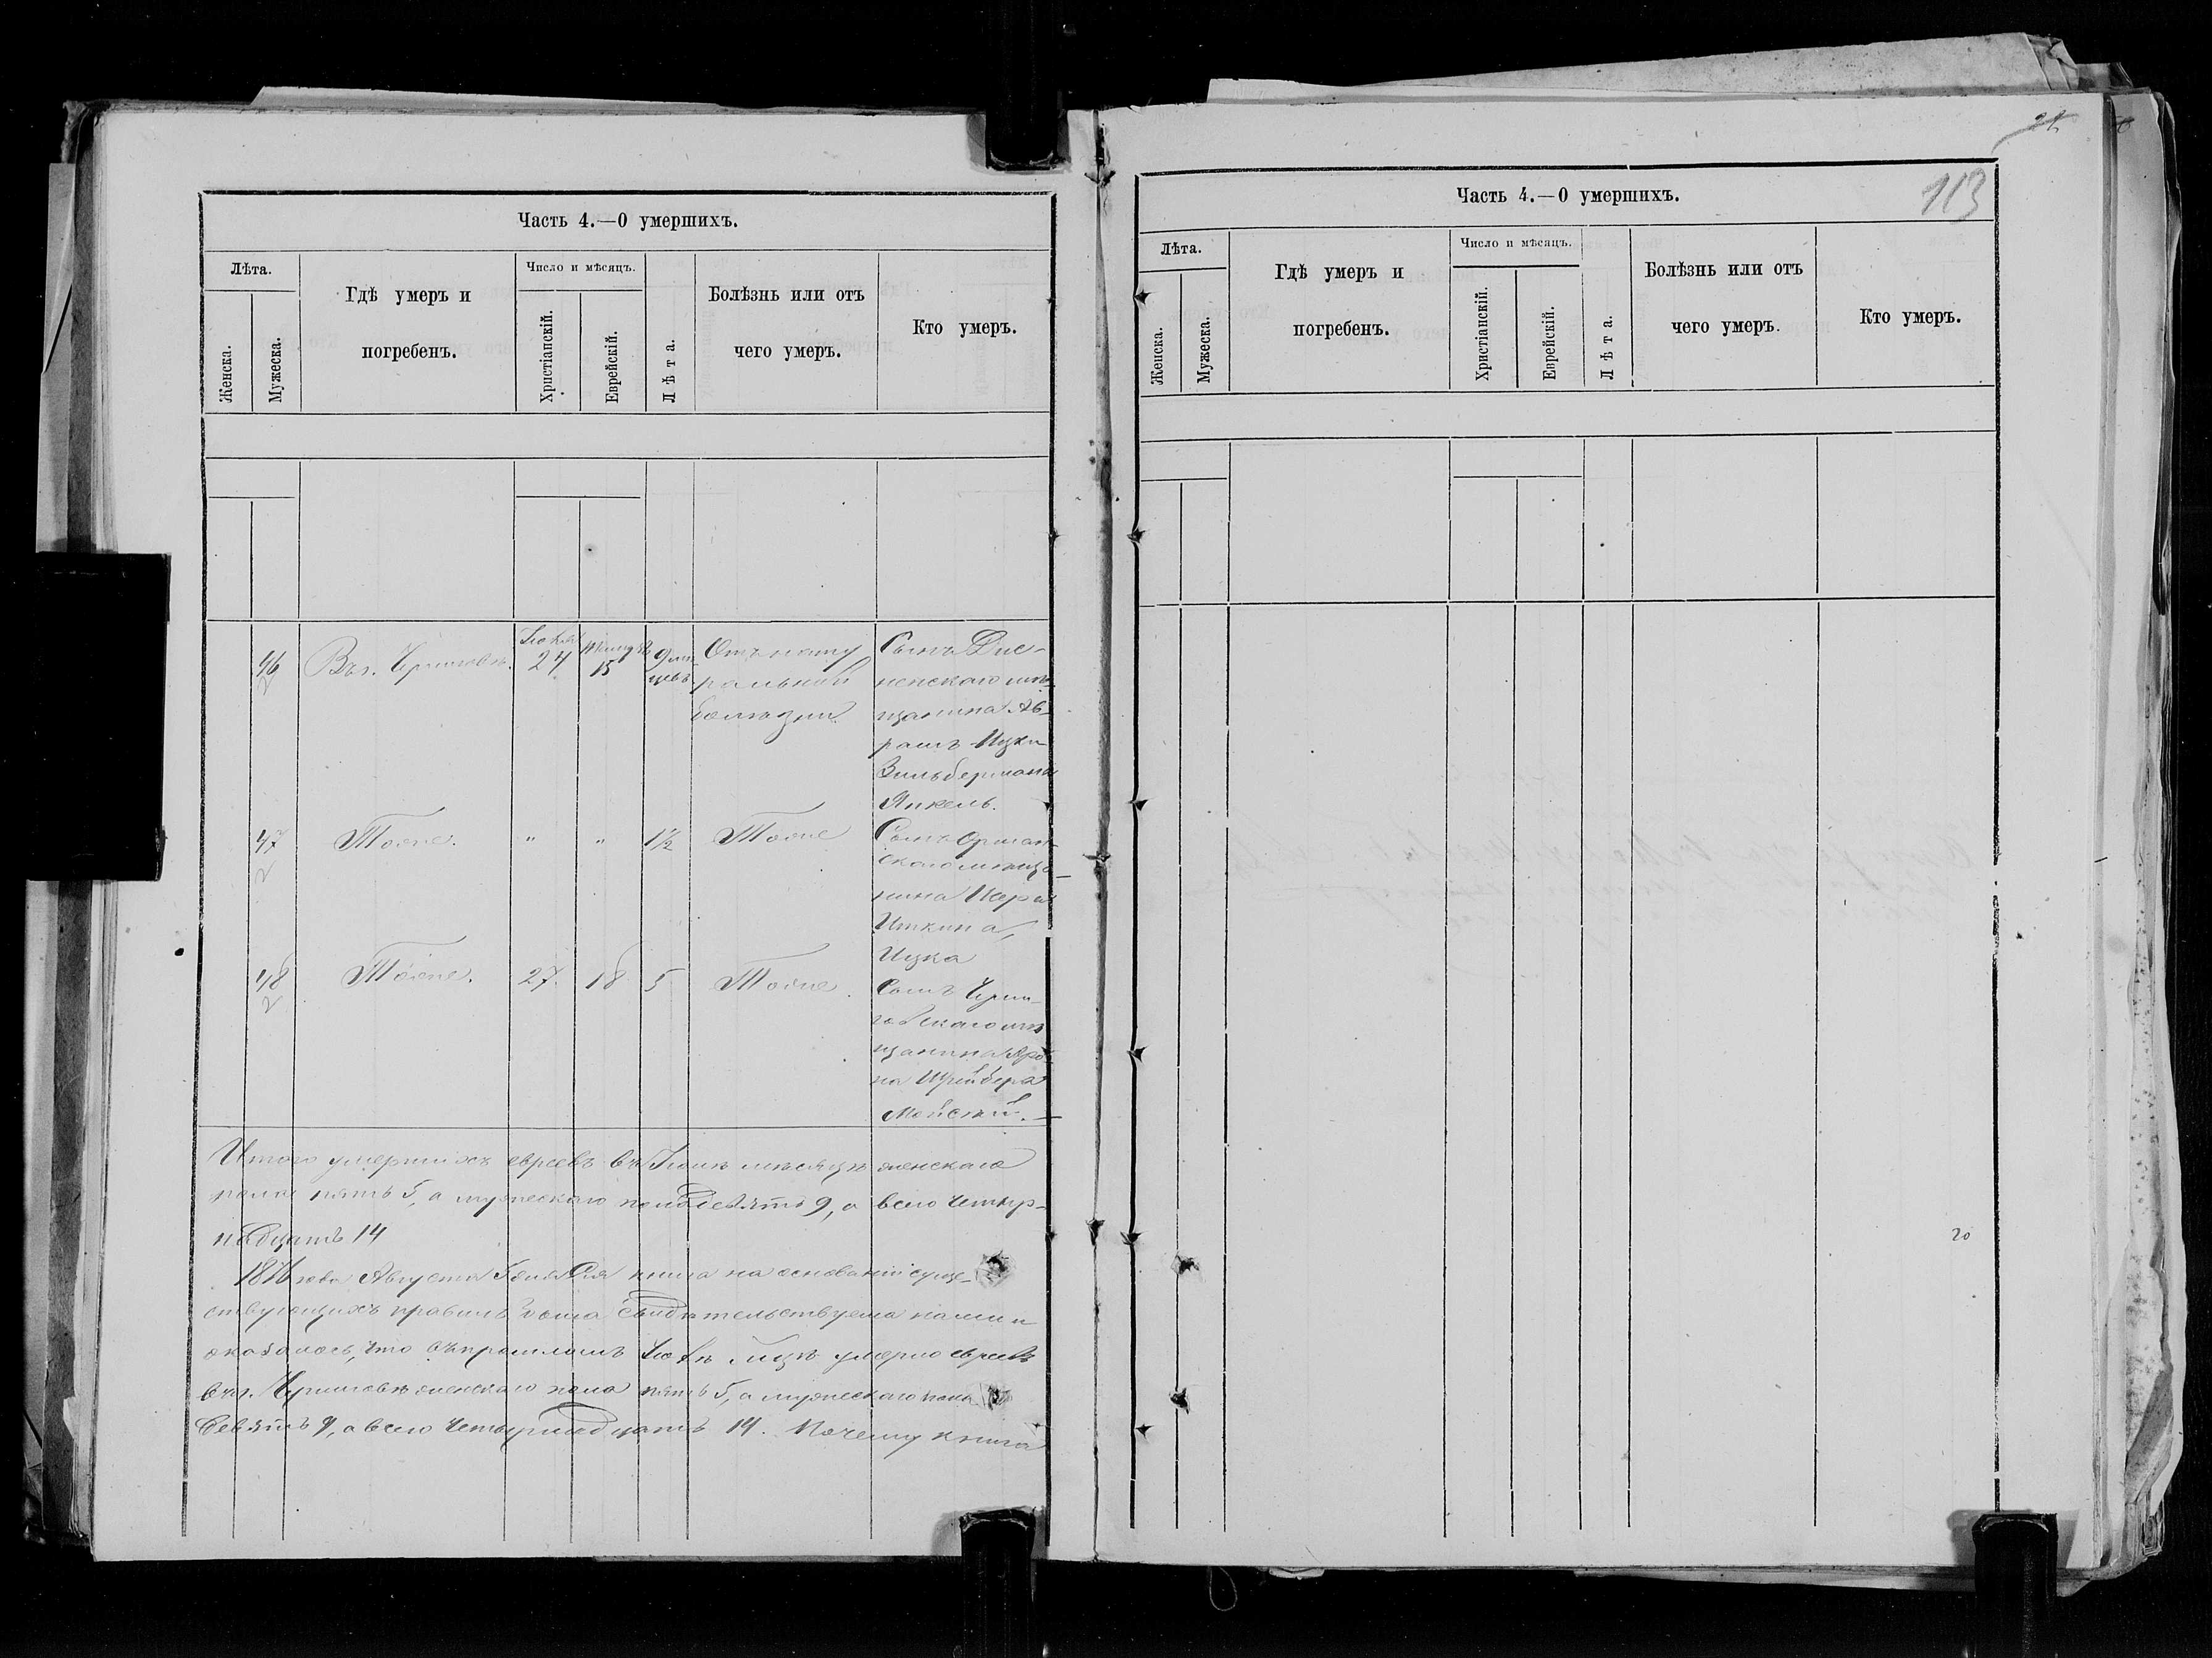 Часть 4.—О умершихъ.
Лѣта.
Женска.
Мужеска.
Гдѣ умеръ и
погребенъ.
Число и мѣсяцъ.
Христіанскій.
Еврейскій.
Лѣта.
Болѣзнь или отъ
чего умеръ.
Кто умеръ.
46
2
Въ г. Черниговѣ.
24
15
9 мѣ-
Отъ нату
ральной
болѣзни
Сынъ Дис-
ненскаго мѣ-
щанина Аб-
рамъ Ицки
Зильбермана
Янкель.
47
2
Тоже.
"
"
1½
Тоже
Сынъ
скаго мѣща-
нина
Иткина,
Ицка
48
2
Тоже.
27.
18
5
Тоже
Сынъ Черни-
говскаго мѣ
щанина Аро-
на Шрейбера
Итого умершихъ евреевъ въ мѣсяцѣ женскаго
пола пять 5, а мужескаго пола девять 9, а всего четыр-
надцать 14
1876 года Августа дня Сія книга на основаніи суще-
ствующихъ правилъ была свидѣтельствуема нами и
оказалось, что въ прошломъ умерло евреевъ
въ г. Черниговѣ женскаго пола пять 5, а мужескаго пола
девять 9, а всего четырнадцать 14. Почему книга
113
Часть 4.—О умершихъ.
Лѣта.
Женска.
Мужеска.
Гдѣ умеръ и
погребенъ.
Число и мѣсяцъ.
Христіанскій.
Еврейскій.
Лѣта.
Болѣзнь или отъ
чего умеръ.
Кто умеръ.
20